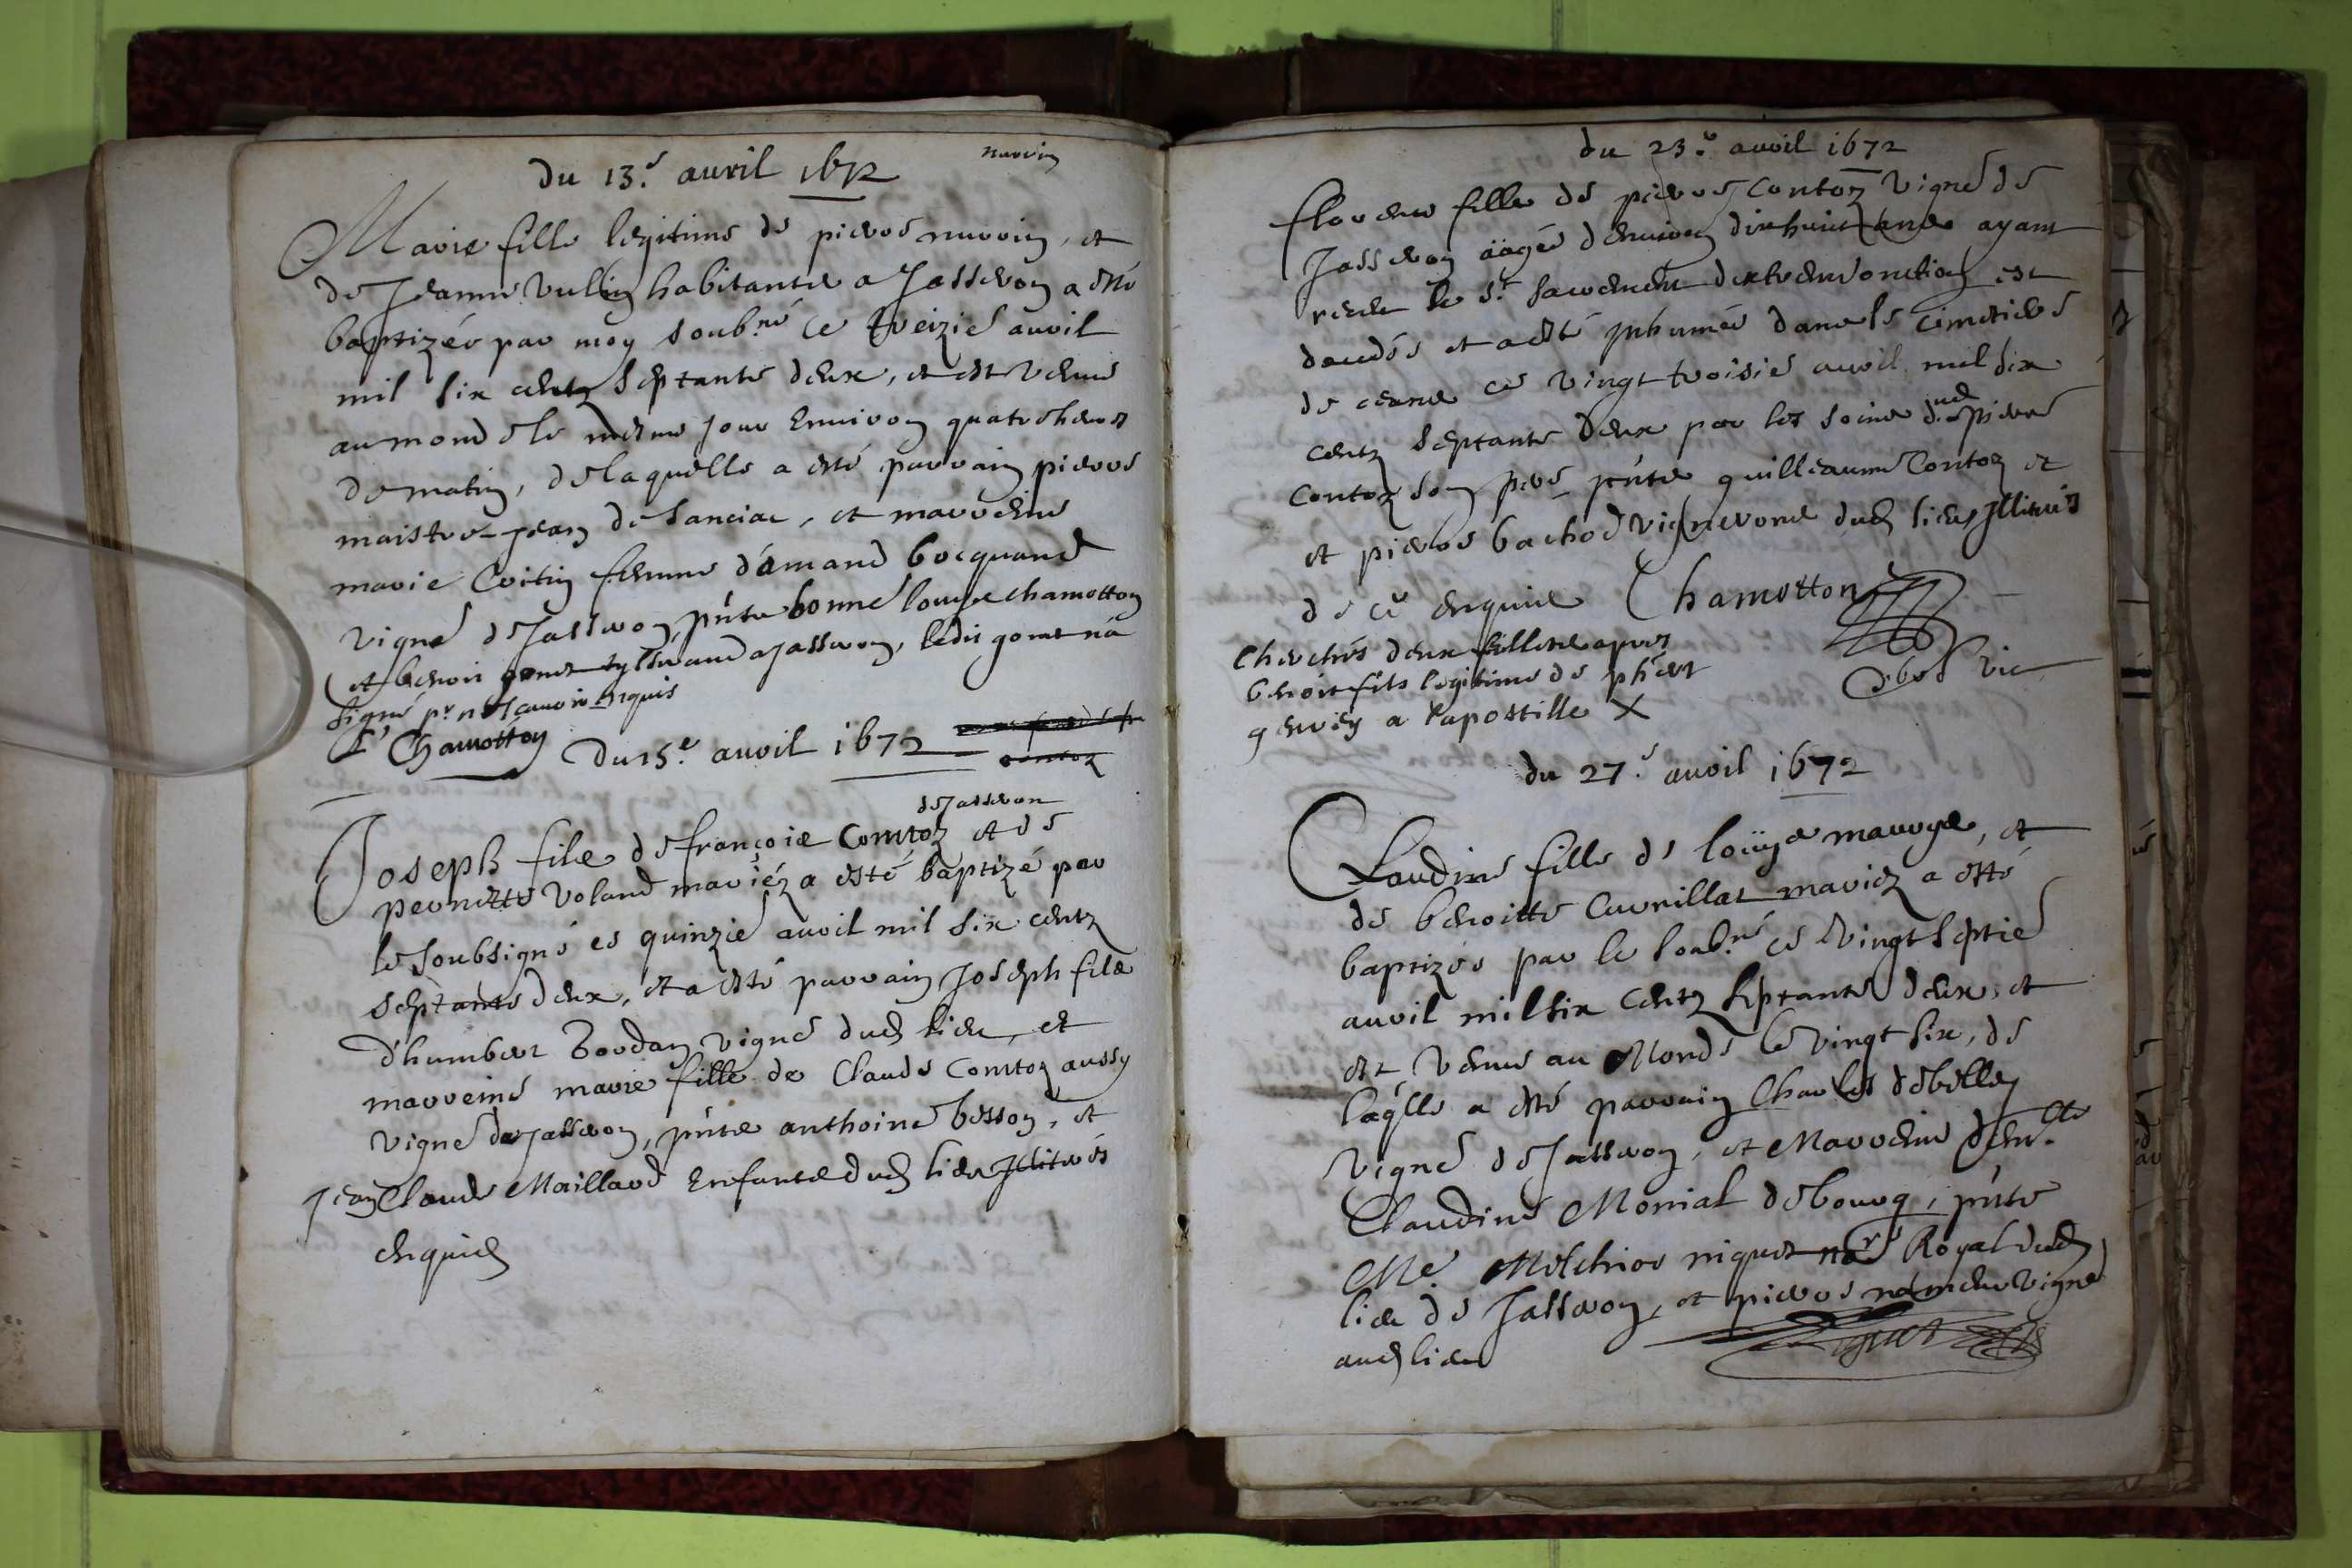 nuvvin
du 13.e avril 1672
Marie fille legitime de pierre nuvvin, et
de Jeanne Vullin habitants a Jasseron a esté
baptizée par moy soub.né ce treizie avril
mil six centz septante deux, et est venue
au monde le mesme jour Environ quatre heures
de matin, de laquelle a esté parrain pierre
maistre-Jean de sanciac, et marreine
marie Coitin femme d'émand bocquand
vigne de Jasseron, pnts bonne louyse chamotton
et benoit gomet a Jasseron, ledit gomet n'a
signé pr ne scavoir Enquis
Chamotton
Du 15.e avril 1672
contoz
de Jasseron
Joseph filz de françois Comtoz et de
pernette Voland mariéz a esté baptizé par
le soubsigné ce quinzie avril mil six centz
septante deux, et a esté parrain Joseph filz
d'humbert Bordan vigne dud lieu et
marreine marie fille de Claude Comtoz aussy
vigne de Jasseron, pnts anthoine besson, et
Jean Claude Maillard Enfants dud lieu Jllitrés
enquis
du 23.e avril 1672
florence fille de pierre Contoz vigne de
Jasseron äagée d'environ dixhuict ans ayant
receu le st sacrement d'extremonction est
decedée et a esté Jnhumée dans le Cimetiere
de ceans ce vingt troisie avril mil six
centz septante deux par les soins dud pierre
Contoz son pere pnts guilleaume Contoz et
et pierre bachod vignerons dud lieu Jllitrés
de ce enquis Chamotton
Cherchés deux filletz apres
benoit fils legitime de phert
gervin a l'apostille X
Debos vic
du 27.e avril 1672
Claudine fille de loüys mauvys, et
de benoitte Cuvrillat mariez a esté
baptizée par le soub.né ce vingt septie
avril mil six Centz septante deux, et
est venue au Monde le vingt six, de
laqlle a esté parrain Charles debelley
vigne de Jasseron, et Marreine dem.lle
Claudine Monial de bourg, pnts
Me. Melchior niquet nore Royal dud
lieu de Jasseron, et pierre vigne
aud lieu
niquet